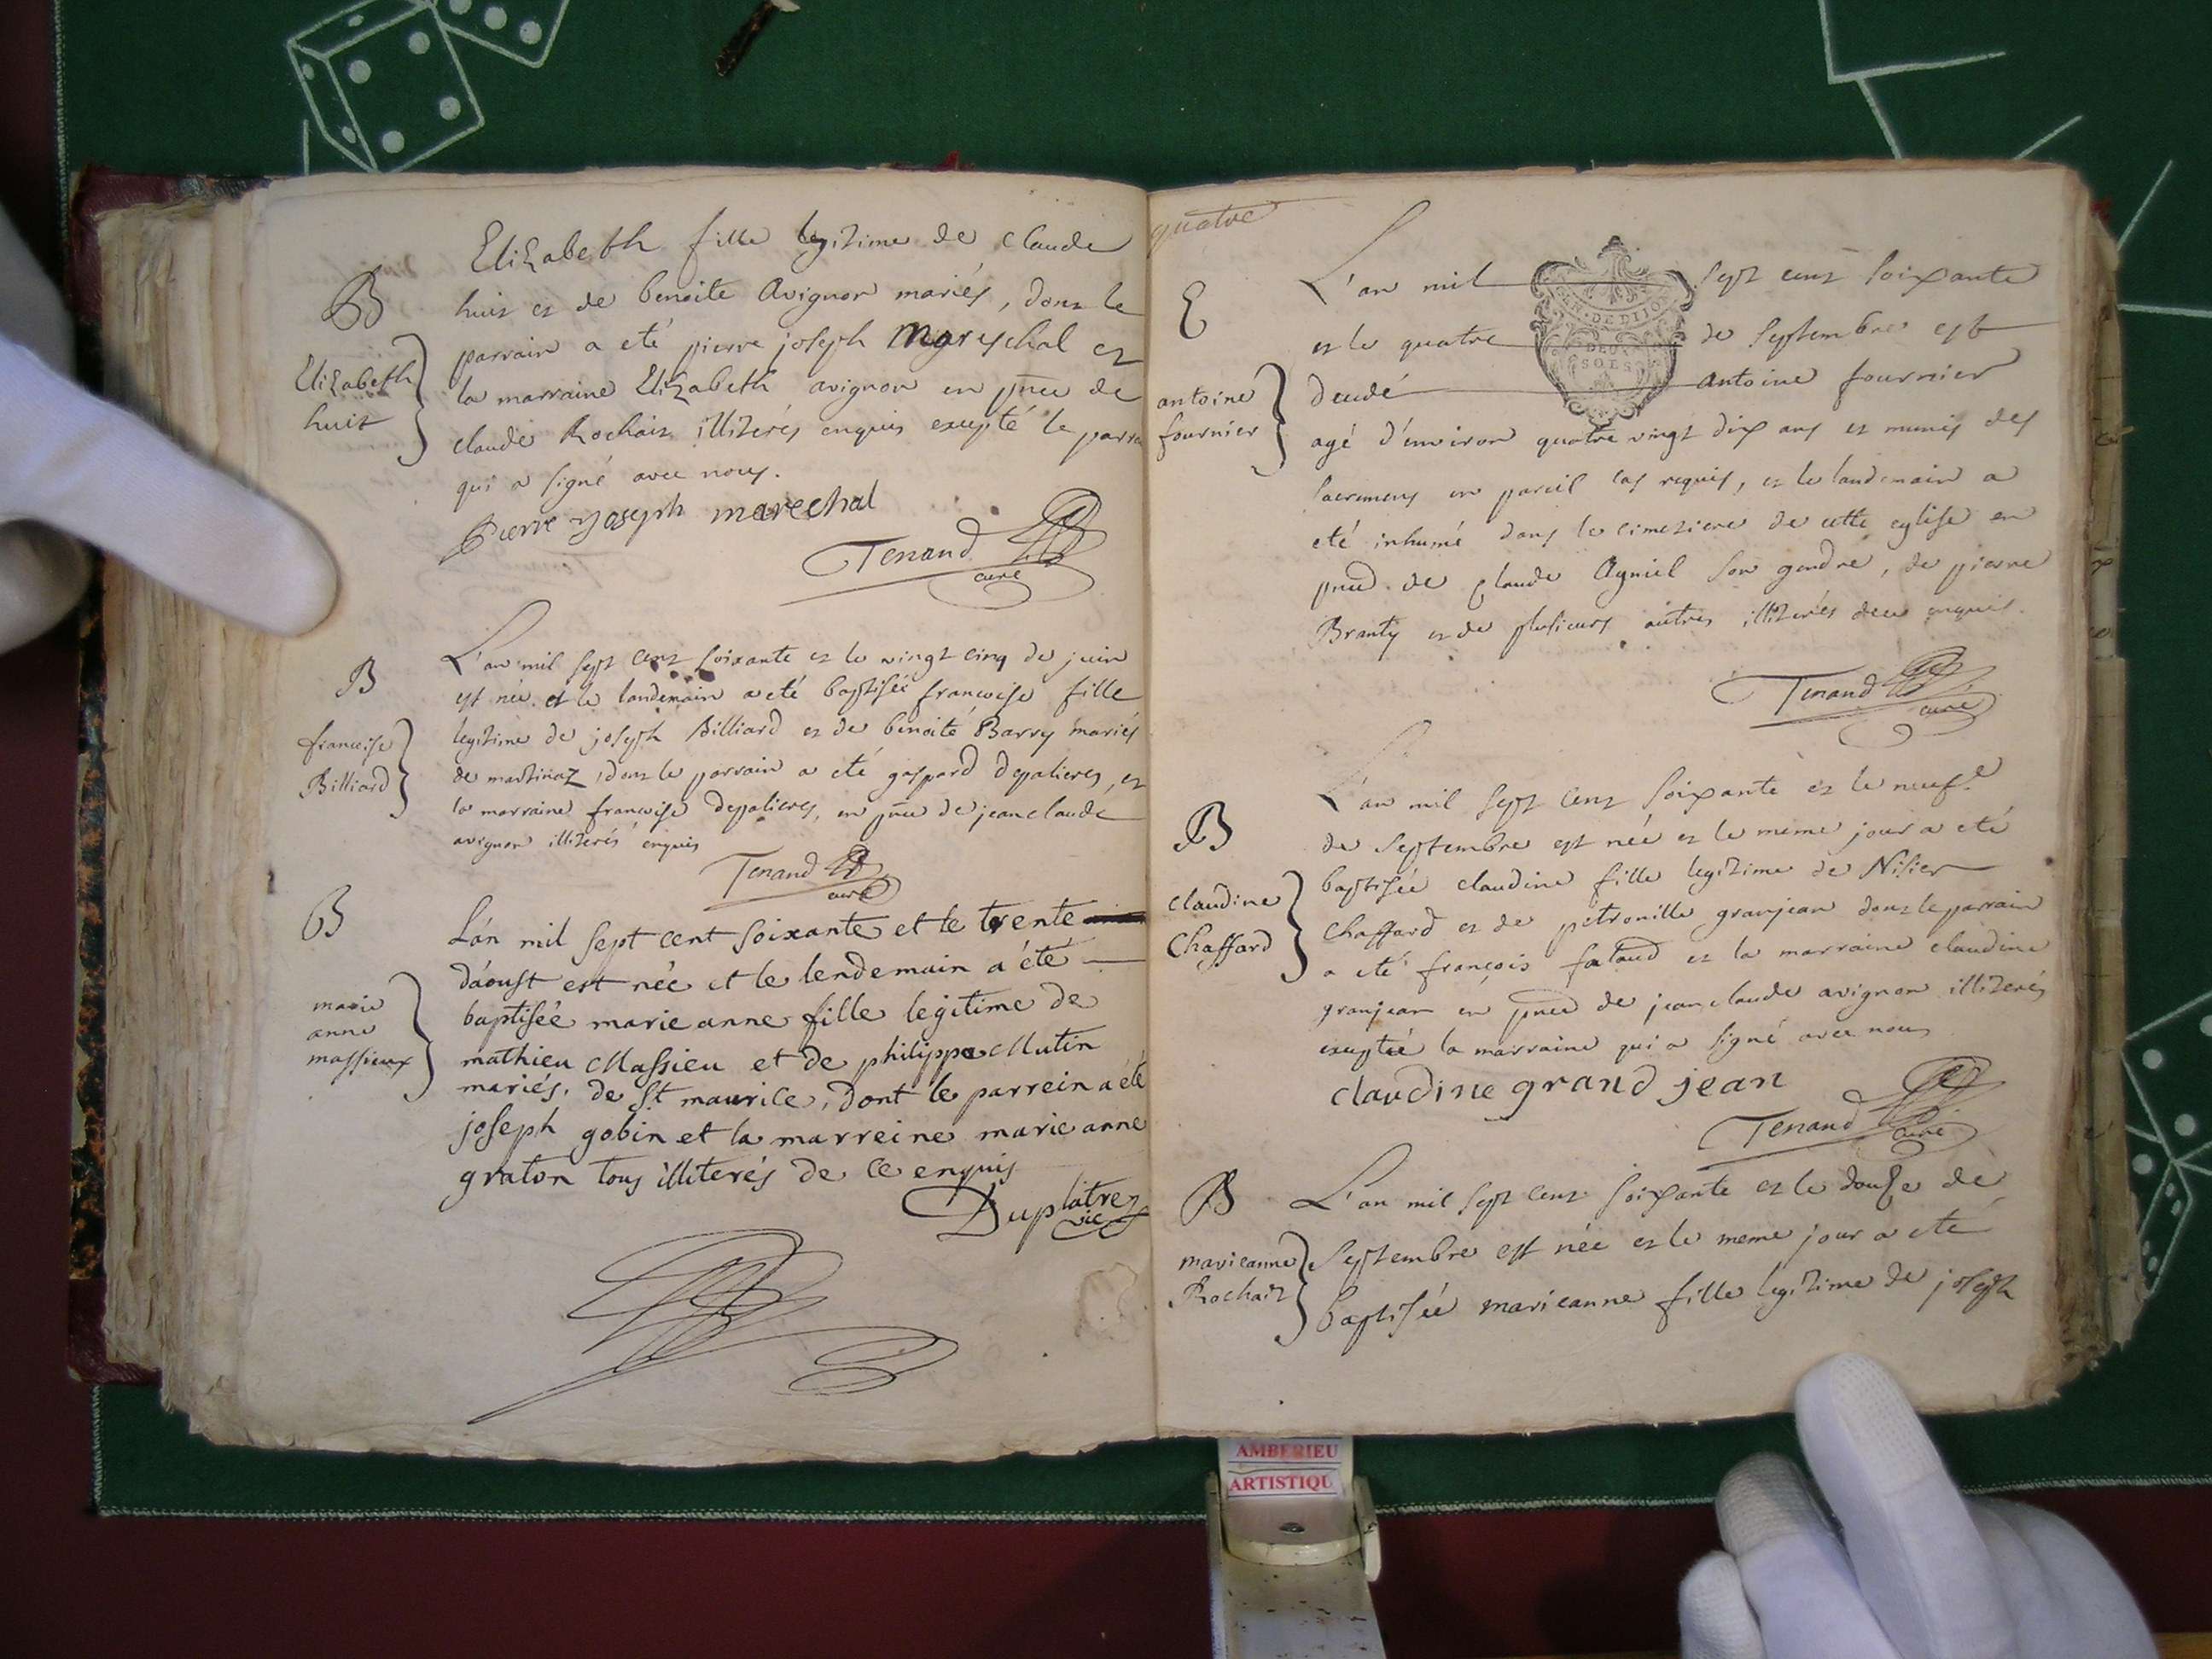 Elizabeth fille legitime de claude
B
huit et de benoite Avignon mariés, dont le
parrain a eté pierre joseph Mareschal et
Elizabeth
huit
la marraine Elizabeth avignon en pnce de
claude Rochaix illiterés enquis excepté le parra
qui a signé avec nous.
Pierre joseph marechal
Tenand
curé
B
francoise
Billiard
L'an mil sept cent soixante et le vingt cinq de juin
est née et le landemain a eté baptisée francoise fille
legitime de joseph Billiard et de benoite Barry mariés
de martinaz, dont le parrain a eté gaspard depalieres, et
la marraine francoise depalieres, en pnce de jean claude
avignon illiterés enquis
Tenand
curé
B
marie
anne
massieux
L'an mil sept cent soixante et le trente
d'aoust est née et le lendemain a été
baptisée marie anne fille legitime de
mathieu Massieu et de philippa Mutin
mariés, de St maurice, dont le parrein a été
joseph gobin et la marreine marie anne
graton tous illiterés de ce enquis
Duplatrez
vic
quatre
E
antoine
fournier
L'an mil sept cent soixante
et le quatre de septembre est
decedé antoine fournier
agé d'environ quatre vingt dix ans et munis des
sacremens en pareil cas requis, et le landemain a
eté inhumé dans le cimetiere de cette eglise en
pnce de Claude Ayniel son gendre, de pierre
Branty et de plusieurs autres illiterés de ce enquis.
GEN. DE DIJON
DEUX
SOLS
Tenand
curé
B
claudine
Chaffard
L'an mil sept cent soixante et le neuf.e
de septembre est née et le meme jour a eté
baptisée claudine fille legitime de Nisier
Chaffard et de petronille granjean dont le parrain
a eté françois fataud et la marraine claudine
granjean en pnce de jean claude avignon illiterés
excepté la marraine qui a signé avec nous
claudine grand jean
Tenand
curé
B
marieanne
Rochaix
L'an mil sept cent soixante et le douze de
septembre est née et le meme jour a eté
baptisée marieanne fille legitime de joseph
AMBERIEU
ARTISTIQU